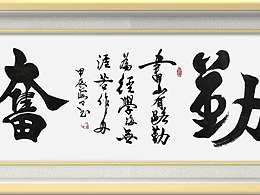 勤
書山有路勤
為徑學海無
涯苦作舟
奮